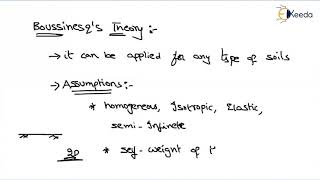 Ekeeda
Boussinesq's Theory :-
→ it can be applied for any type of soils
→ Assumptions :-
* homogeneous, Isotropic, Elastic,
semi-Infinite
* self-weight of